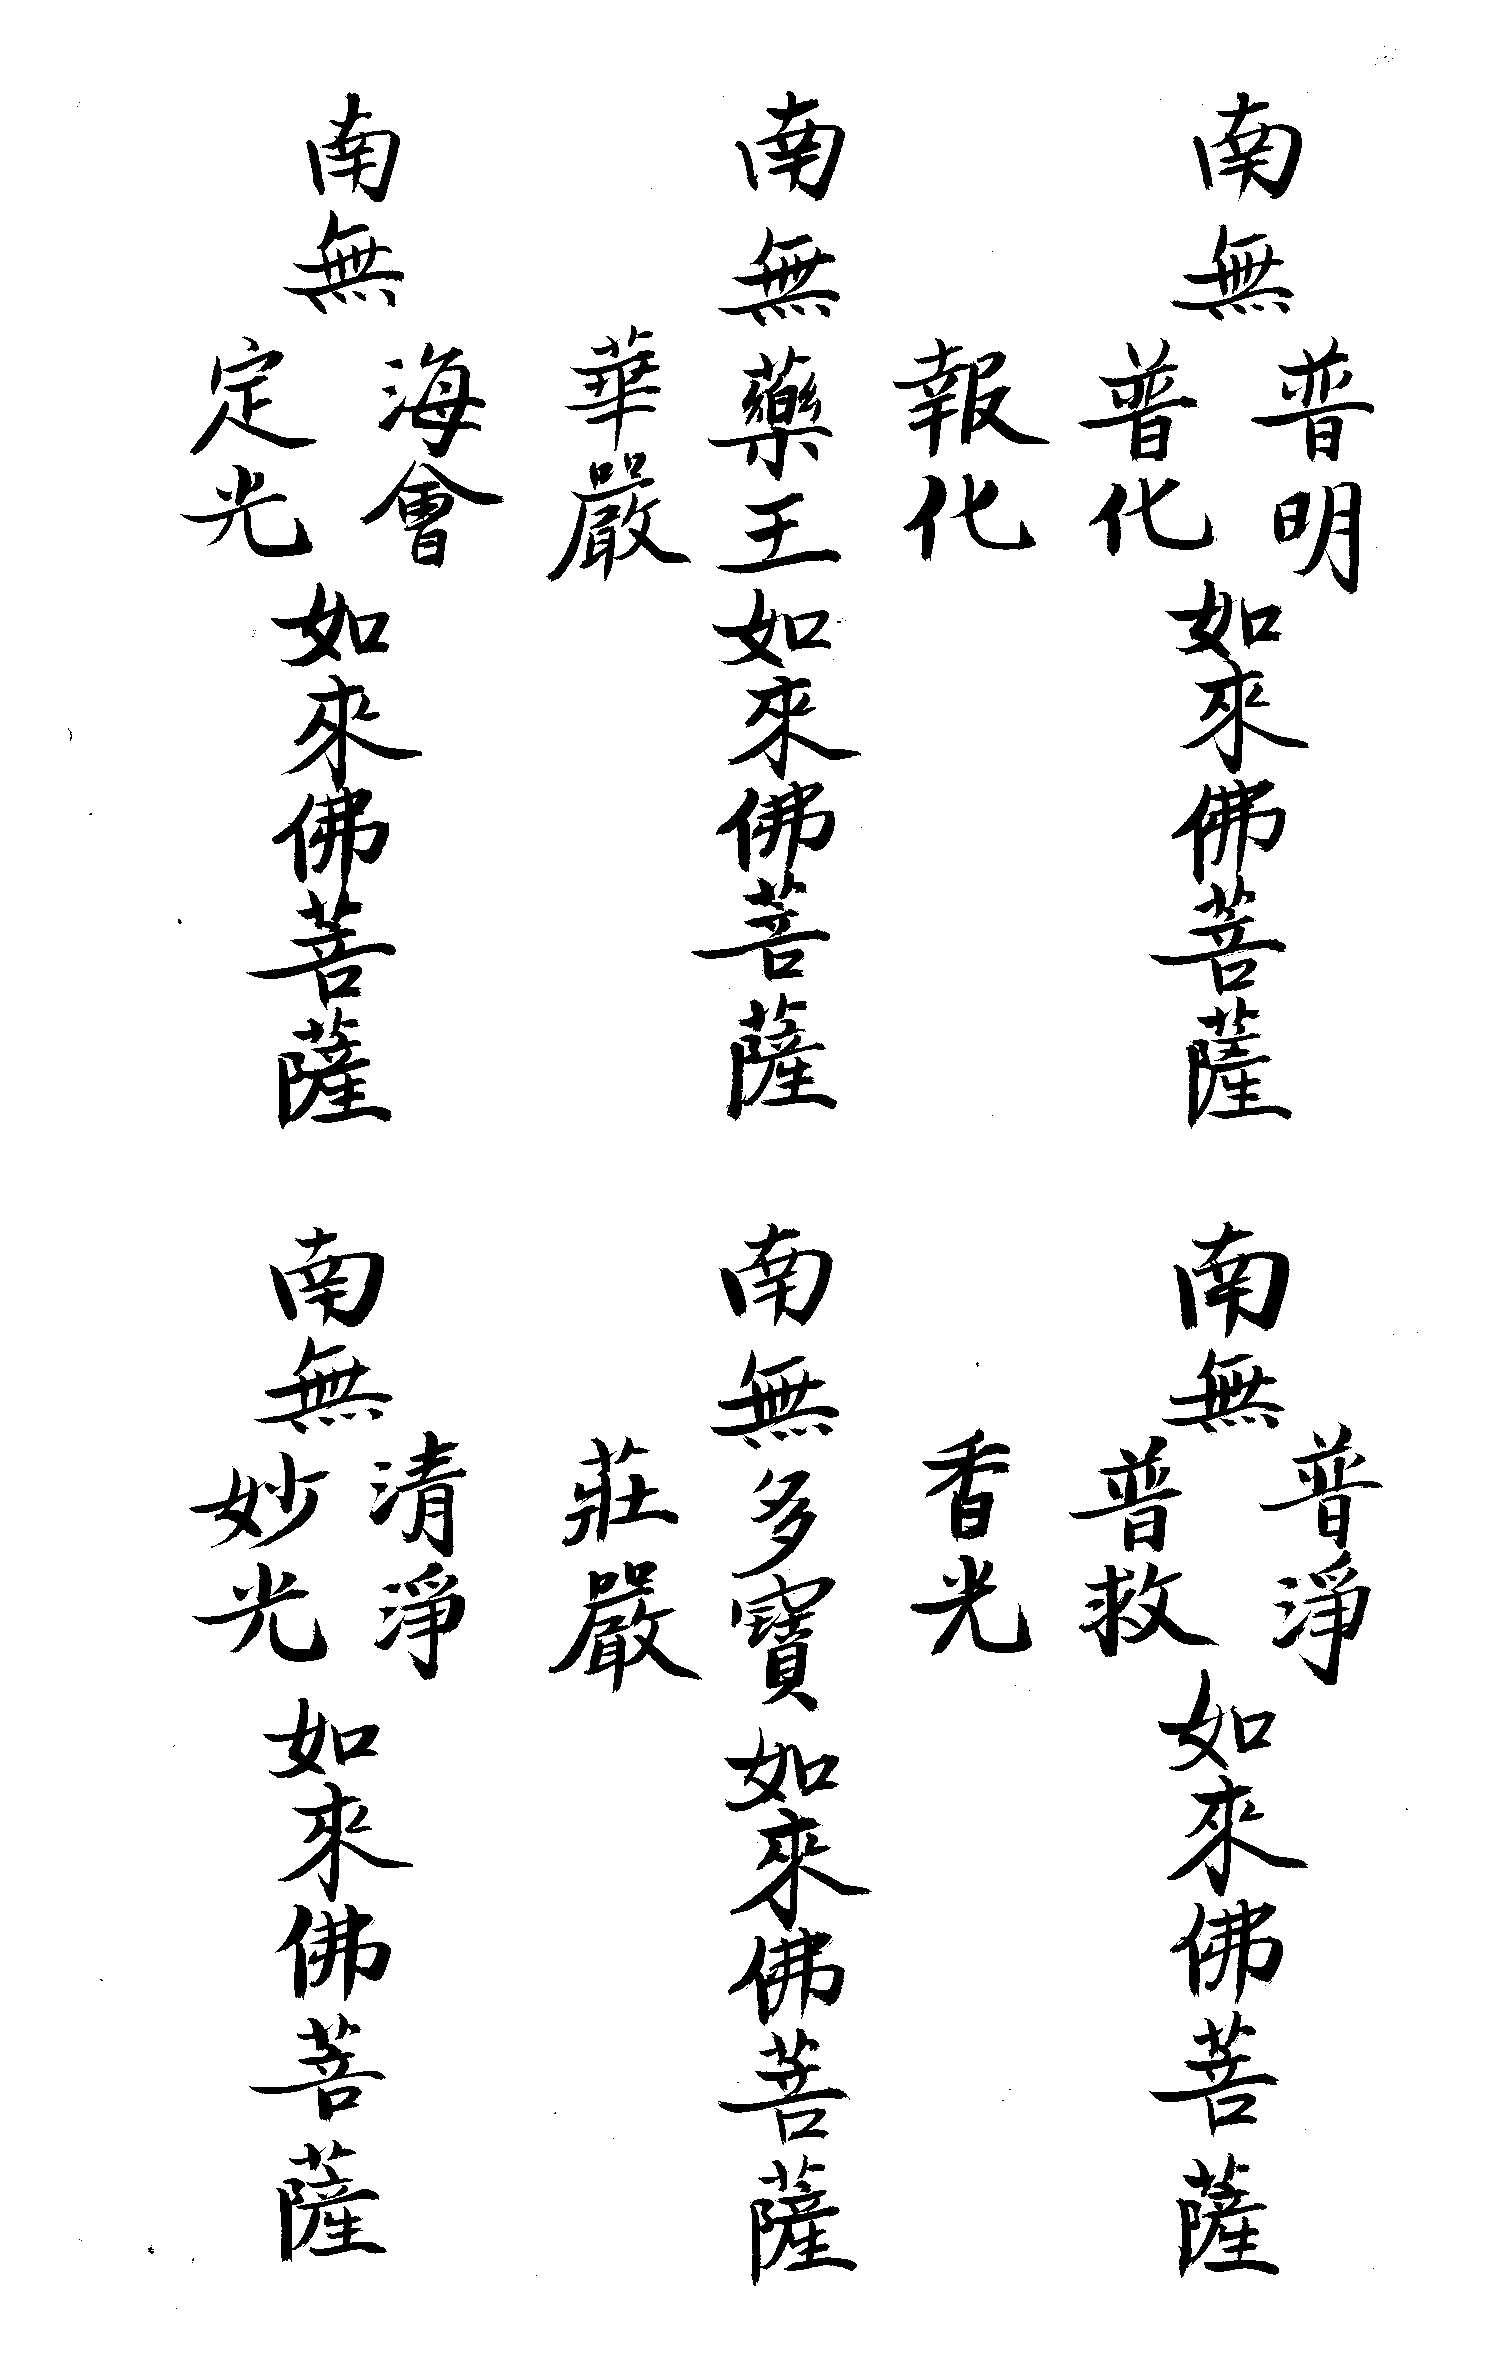 南無
普明
普化
如來佛菩薩
南無
報化
藥王
華嚴
如來佛菩薩
南無
海會
定光
如來佛菩薩
南無
普淨
普救
如來佛菩薩
南無
香光
多寶
莊嚴
如來佛菩薩
南無
清淨
妙光
如來佛菩薩